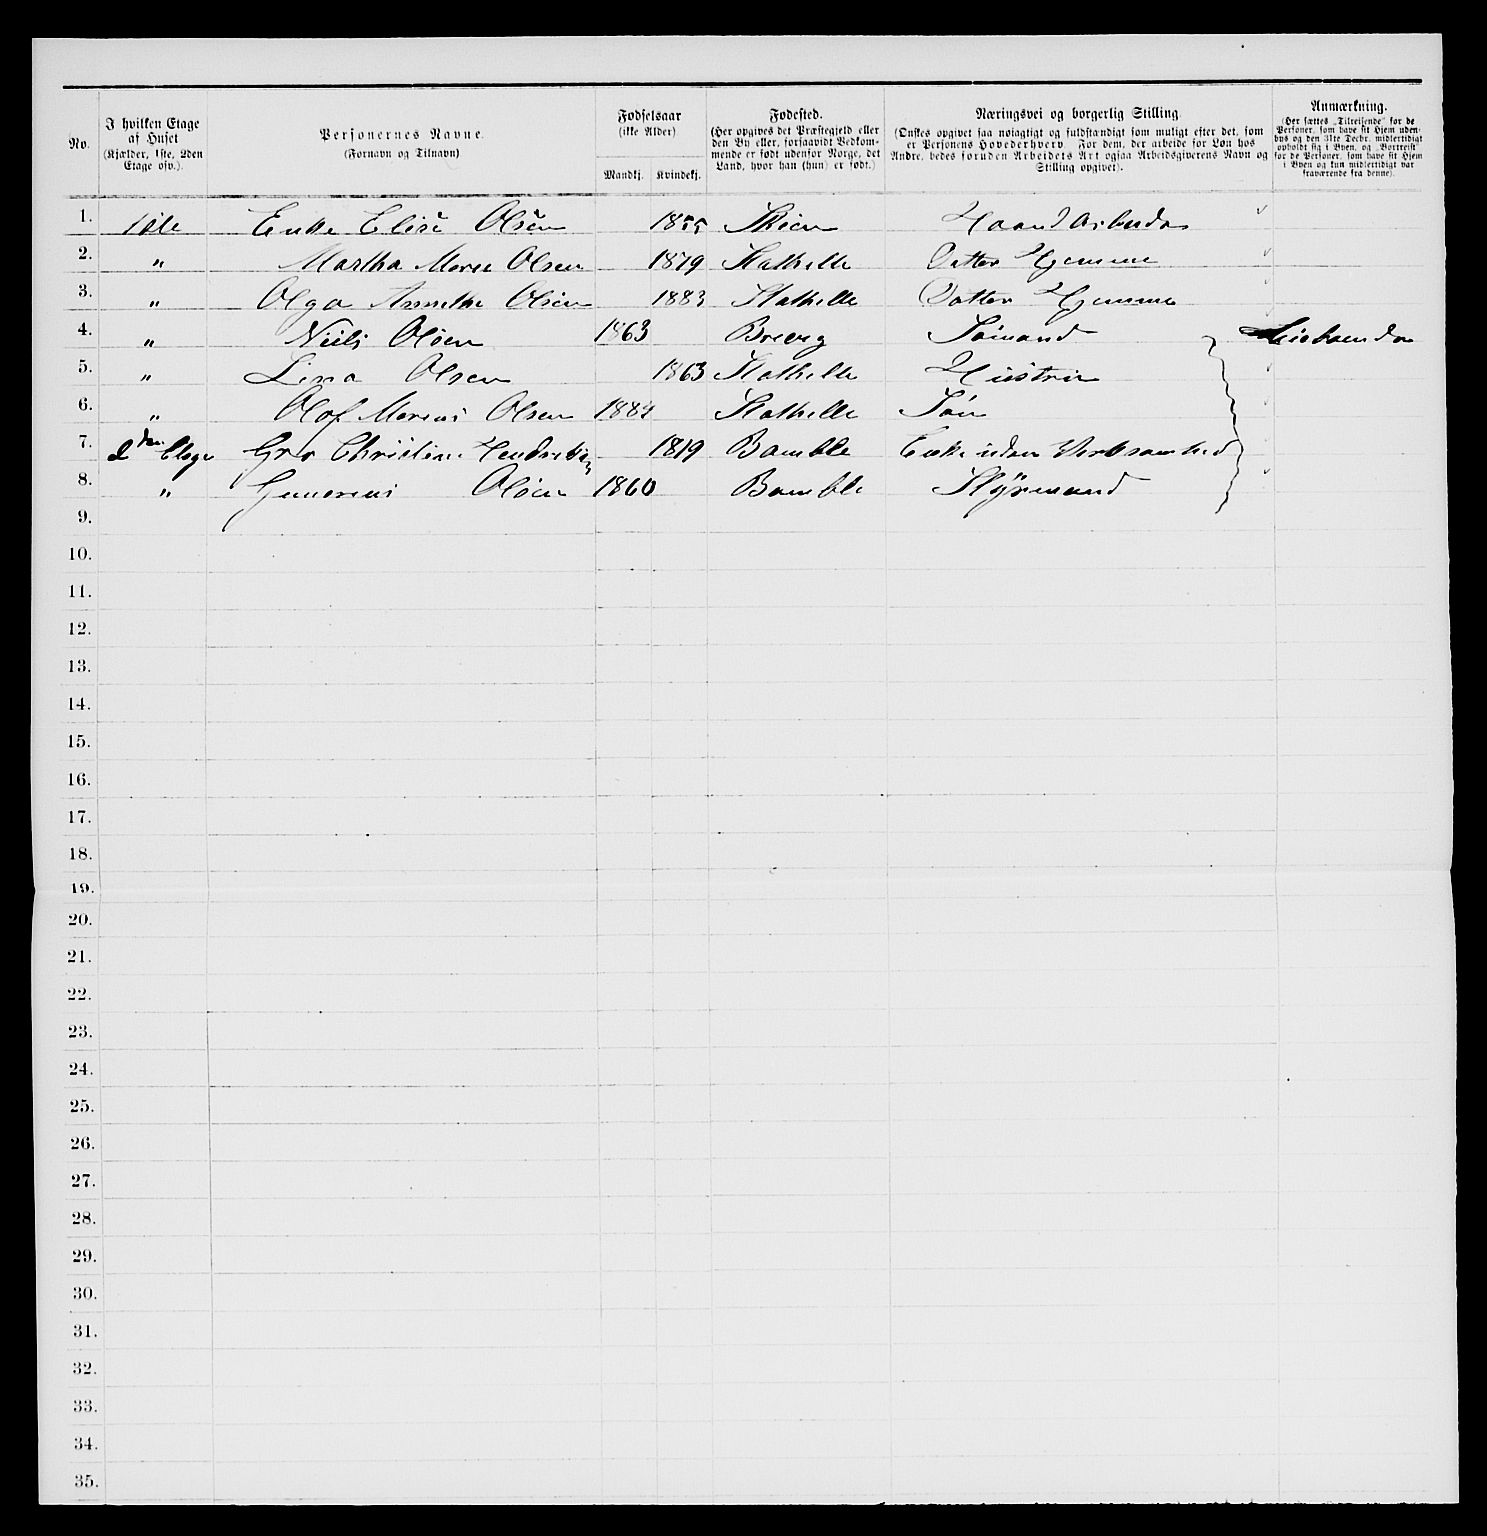 No.
I hvilken Etage
af Huset
(Kjælder, 1ste, 2den
Etage osv.).
Personernes Navne.
(Fornavn og Tilnavn)
Fødselsaar
(ikke Alder)
Mandkj. Kvindekj.
Fødested.
(Her opgives det Præstegjeld eller
den By eller, forsaavidt Vedkom-
mende er født udenfor Norge, det
Land, hvor han (hun) er født.)
Næringsvei og borgerlig Stilling.
(Ønskes opgivet saa nøiagtigt og fuldstændigt som muligt efter det, som
er Personens Hovederhverv. For dem, der arbeide for Løn hos
Andre, bedes foruden Arbeidets Art ogsaa Arbeidsgiverens Navn og
Stilling opgivet).
Anmærkning.
(Her sættes „Tilreisende" for de
Personer, som have sit Hjem uden-
bys og den 31te Decbr. midlertidigt
opholdt sig i Byen, og „Bortreist"
for de Personer, som have sit Hjem
i Byen og kun midlertidigt var
fraværende fra denne).
1. 1ste Enke Elise Olsen 1855 Skien Haand Arbeide
2. " Martha Olsen 1879 Stathelle Datter Hjemme
3. " Olga Annethe Olsen 1883 Stathelle Datter Hjemme
4. " Niels Olsen 1863 Brevig Sømand Leieboende
5. " Lina Olsen 1863 Stathelle Hustru
6. " Olof Olsen 1884 Stathelle Søn
7. 2den Etage Gro Christine Hendriksen 1819 Bamble Enke uden Virksomhed
8. " Gunerius Olsen 1860 Bamble Styrmand
9.
10.
11.
12.
13.
14.
15.
16.
17.
18.
19.
20.
21.
22.
23.
24.
25.
26.
27.
28.
29.
30.
31.
32.
33.
34.
35.